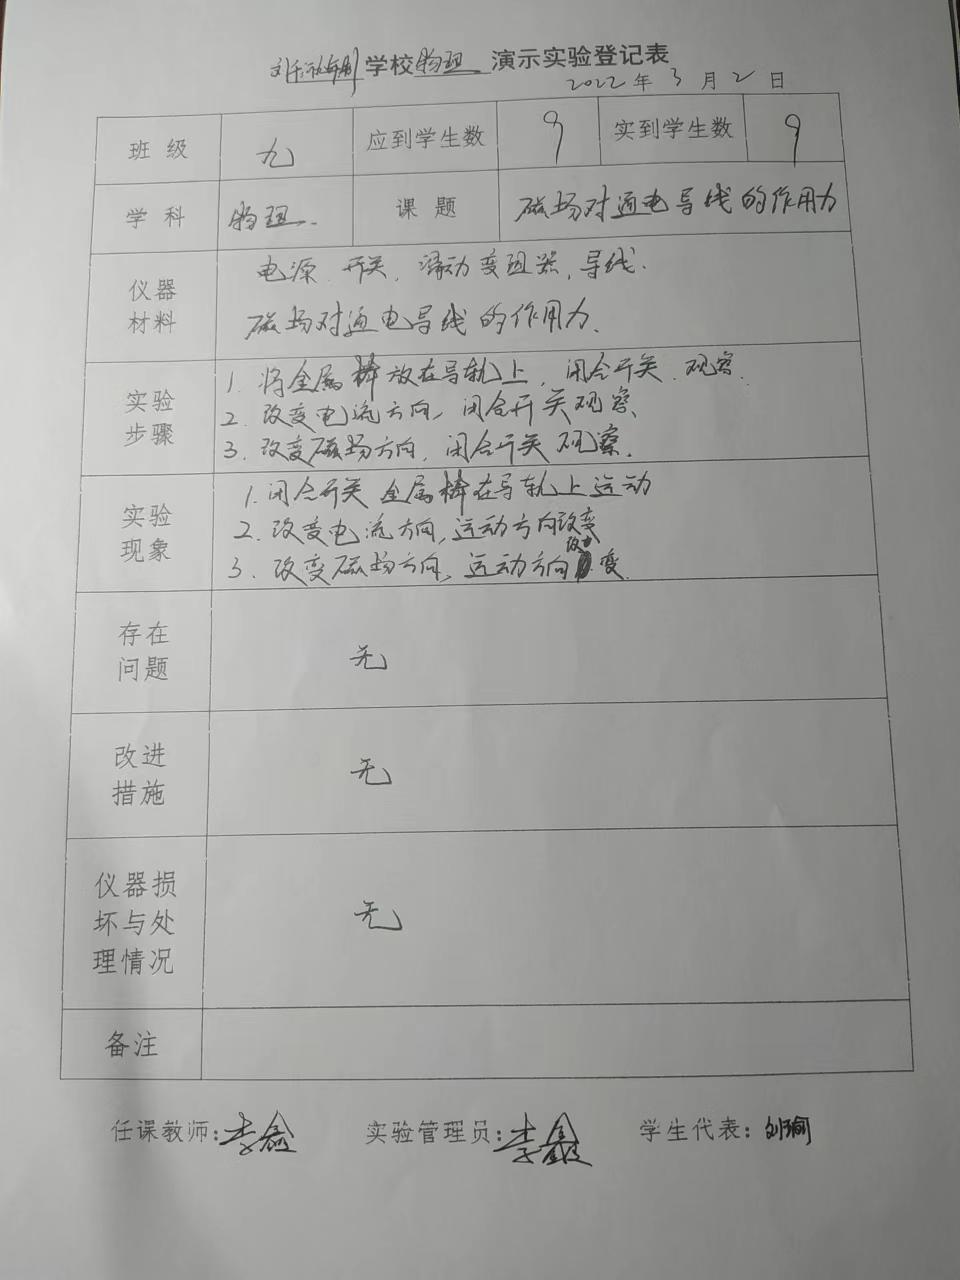 学校物理 演示实验登记表
2022年3月2日
班级 九 应到学生数 9 实到学生数 9
学科 物理. 课题 磁场对通电导线的作用力
仪器材料 电源.开关.滑动变阻器,导线.
磁场对通电导线的作用力.
实验步骤 1.将金属棒放在导轨上,闭合开关.观察.
2.改变电流方向,闭合开关观察.
3.改变磁场方向,闭合开关观察.
实验现象 1.闭合开关 金属棒在导轨上运动
2.改变电流方向,运动方向改变
3.改变磁场方向,运动方向改变.
存在问题 无
改进措施 无
仪器损坏与处理情况 无
备注
任课教师:李鑫 实验管理员:李鑫 学生代表:刘瑜